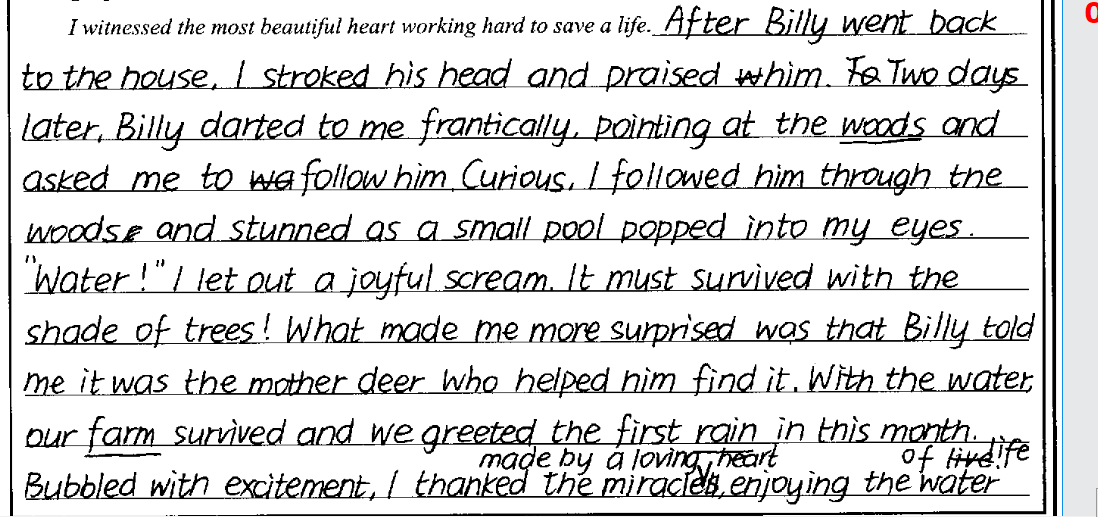 I witnessed the most beautiful heart working hard to save a life. After Billy went back
to the house, I stroked his head and praised him. Two days
later, Billy darted to me frantically, pointing at the woods and
asked me to follow him. Curious, I followed him through the
woods and stunned as a small pool popped into my eyes.
"Water!" I let out a joyful scream. It must survived with the
shade of trees! What made me more surprised was that Billy told
me it was the mother deer who helped him find it. With the water,
our farm survived and we greeted the first rain in this month.
made by a loving heart of life
Bubbled with excitement, I thanked the miracles, enjoying the water